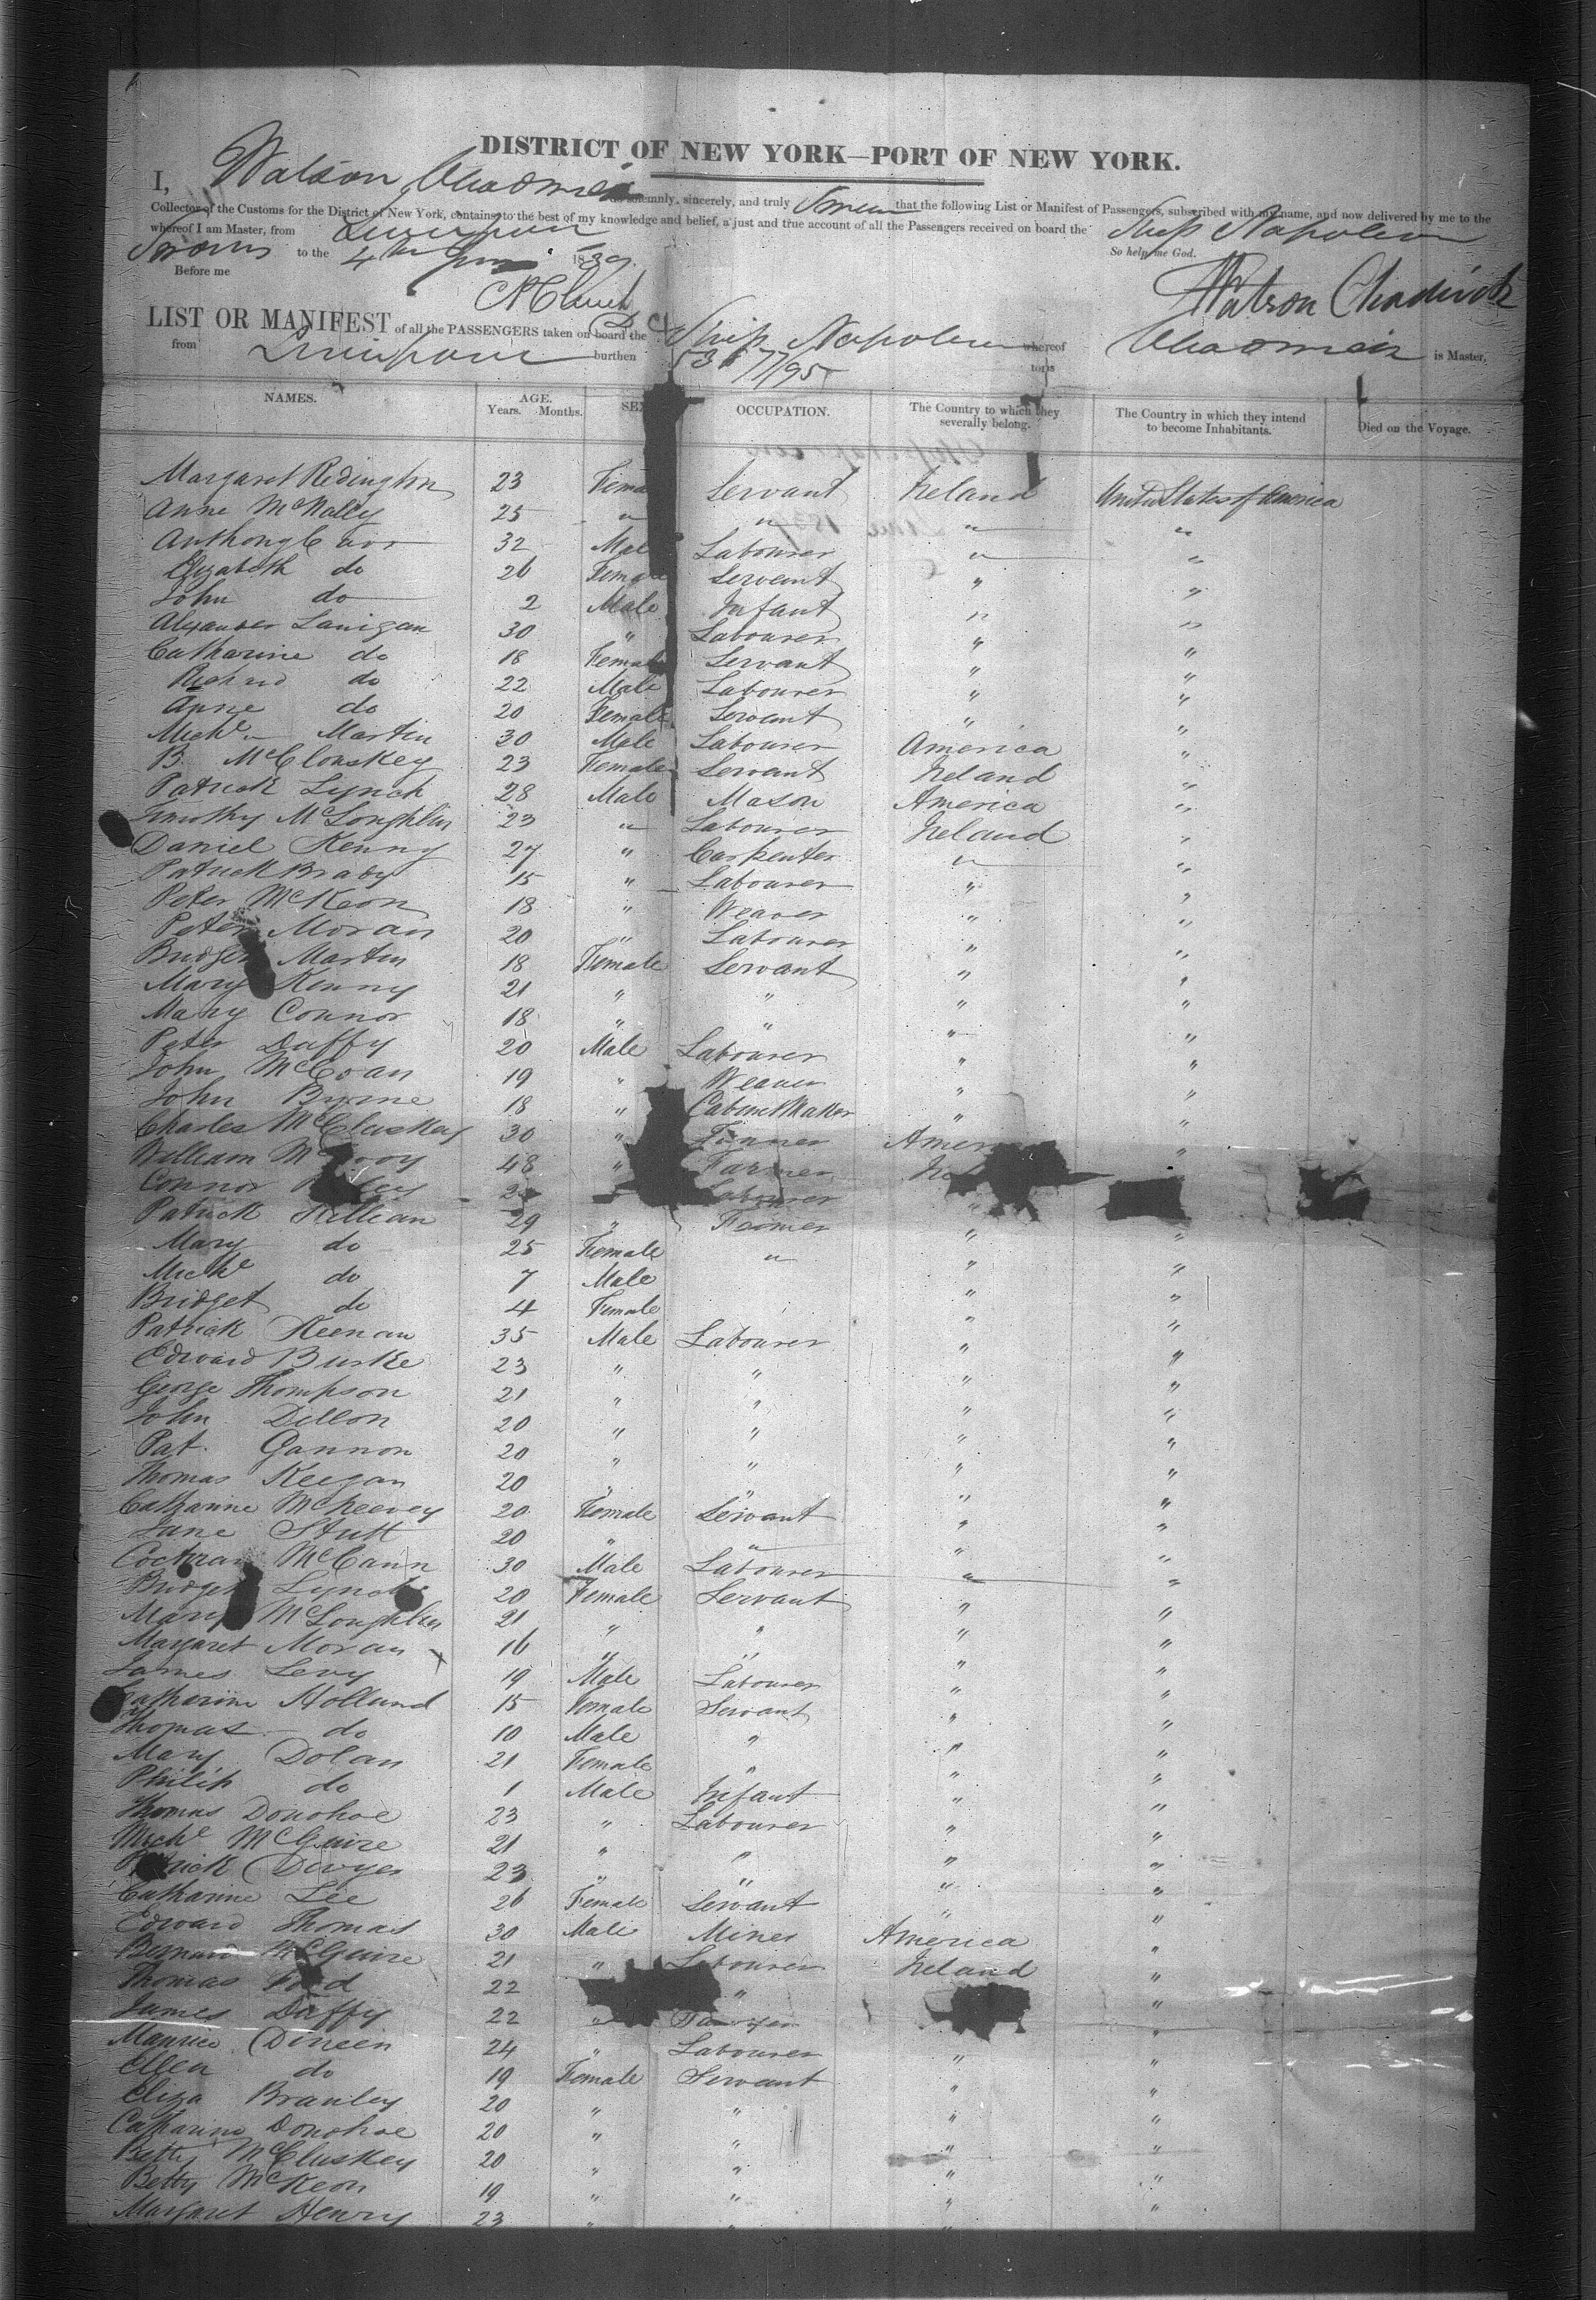 DISTRICT OF NEW YORK—PORT OF NEW YORK.
I, Watson Chadwick do solemnly, sincerely, and truly Swear that the following List or Manifest of Passengers, subscribed with my name, and now delivered by me to the
Collector of the Customs for the District of New York, contains, to the best of my knowledge and belief, a just and true account of all the Passengers received on board the Ship Napoleon
whereof I am Master, from Liverpool
Sworn to the 4th June 1839. So help me God.
Before me Watson Chadwick
LIST OR MANIFEST of all the PASSENGERS taken on board the Ship Napoleon whereof Chadwick is Master,
from Liverpool burthen tons
NAMES. AGE. Years. Months. SEX OCCUPATION. The Country to which they severally belong. The Country in which they intend to become Inhabitants. Died on the Voyage.
Margaret Redington 23 Fema Servant Ireland United States of America
Anne McNally 25 " " " "
Anthony 32 Male Labourer " "
Elizabeth do 26 Female Servant " "
John do 2 Male Infant " "
Alexander Lanigan 30 " Labourer " "
Catharine do 18 Female Servant " "
Richard do 22 Male Labourer " "
Anne do 20 Female Servant " "
Michl Martin 30 Male Labourer America "
B. McClouskey 23 Female Servant Ireland "
Patrick Lynch 28 Male Mason America "
Timothy McLoughlin 23 " Labourer Ireland "
Daniel Kenny 27 " Carpenter " "
Patrick Brady 15 " Labourer " "
Peter McKeon 18 " Weaver " "
Peter Moran 20 " Labourer " "
Bridget Martin 18 Female Servant " "
Mary Kenny 21 " " " "
Mary Connor 18 " " " "
Peter Duffy 20 Male Labourer " "
John McEvan 19 " Weaver " "
John Byrne 18 " Cabinet Maker " "
Charles McCluskey 30 " America "
William 48 " Farmer "
Connor Labourer "
Patrick Killian 29 " Farmer " "
Mary do 25 Female " " "
Michl do 7 Male " "
Bridget do 4 Female " "
Patrick Keenan 35 Male Labourer " "
Edward Burke 23 " " " "
George Thompson 21 " " " "
John Dillon 20 " " " "
Pat. Gannon 20 " " " "
Thomas Keegan 20 " " " "
Catharine McKeevey 20 Female Servant " "
Jane Stutt 20 " " " "
Cochran McCann 30 Male Labourer " "
Bridget Lynch 20 Female Servant " "
Mary McLoughlin 21 " " " "
Margaret Moran 16 " " " "
James Levy 19 Male Labourer " "
Catharine Holland 15 Female Servant " "
Thomas do 10 Male " " "
Mary Dolan 21 Female " " "
Philip do 1 Male Infant " "
Thomas Donohoe 23 " Labourer " "
Michl McGuire 21 " " " "
Patrick Dwyer 23 " " " "
Catharine Lee 26 Female Servant " "
Edward Thomas 30 Male Miner America "
Bernard McGuire 21 " Labourer Ireland "
Thomas Ford 22 " "
James Duffy 22 " "
Maurice Dineen 24 " Labourer " "
Ellen do 19 Female Servant " "
Eliza Branley 20 " " " "
Catharine Donohoe 20 " " " "
Betty McCluskey 20 " " " "
Betty McKeon 19 " " " "
Margaret Henry 23 " " "